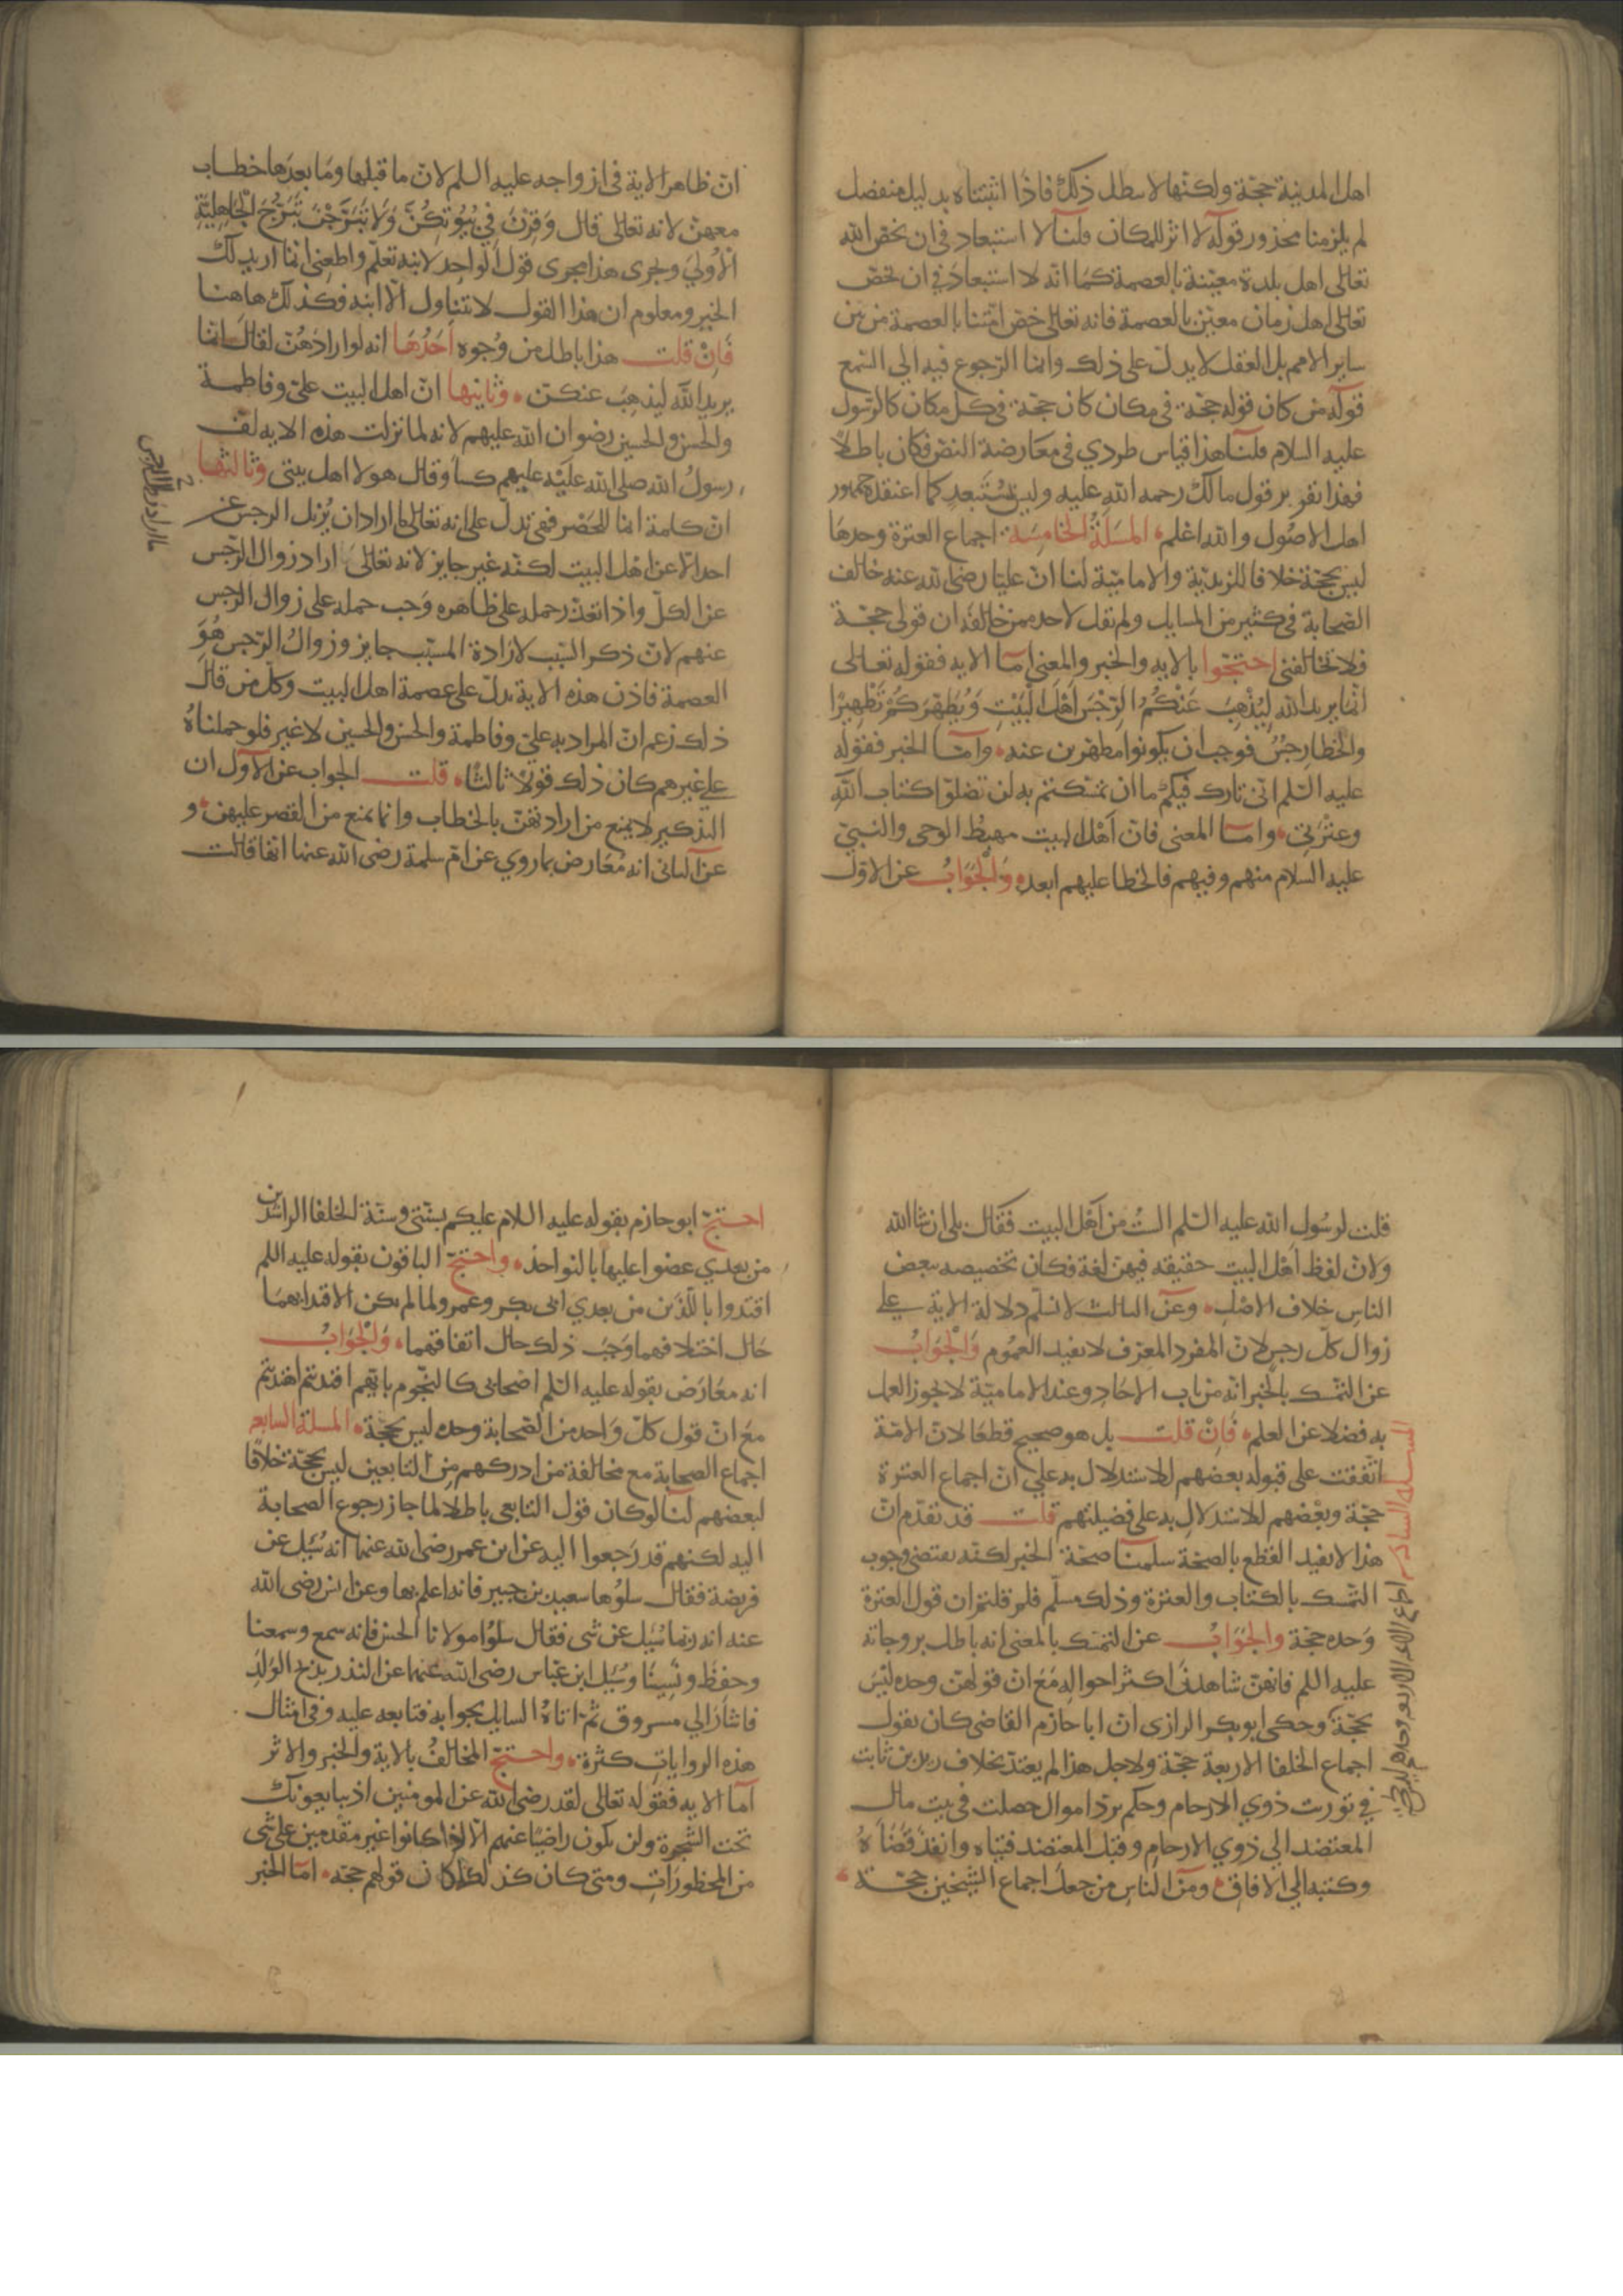 اهل المدينة حجة ولكنها لا سطل ذلك فاذا اثبتناه بدليل منفصل
لم يلزمنا محذور قوله لا اثر للمكان قلنا لا استبعاد في ان يخص الله
تعالى اهل بلدة معينة بالعصمة كما انه لا استبعاد في ان يخص
تعالى اهل زمان معين بالعصمة فانه تعالى خص امتنا بالعصمة من بين
ساير الامم بل العقل لا يدل على ذلك وانما الرجوع فيه الي السمع
قوله من كان قوله حجة في مكان كان حجة في كل مكان كالرسول
عليه السلام قلنا هذا قياس طردي في معارضة النص فكان باطلا
فهذا تقرير قول مالك رحمه الله عليه وليس يستبعد كما اعتقده جمهور
اهل الاصول والله اعلم المسلة الخامسة اجماع العترة وحدها
ليس بحجة خلافا للزيدية والامامية لنا ان عليا رضى الله عنه خالف
الصحابة في كثير من المسايل ولم نقل لاحد ممن خالفه ان قولى حجة
فلا تخالفني احتجوا بالايه والخبر والمعنى اما الايه فقوله تعالى
انما يريد الله ليذهب عنكم الرجس اهل البيت ويطهركم تطهيرا
والخطا رجس فوجب ان يكونوا مطهرين عنه واما الخبر فقوله
عليه السلم انى تارك فيكم ما ان تمسكتم به لن تضلوا كتاب الله
وعترتي واما المعنى فان اهل البيت مهبط الوحى والنبى
عليه السلام منهم وفيهم فالخطا عليهم ابعد والجواب عن الاول
ان ظاهر الاية في ازواجه عليه السلم لان ما قبلها وما بعدها خطاب
معهن لانه تعالى قال وقرن في بيوتكن ولا تبرجن تبرج الجاهلية
الاولي ويجرى هذا مجرى قول الواحد لابنه تعلم واطعنى انما اريد لك
الخير ومعلوم ان هذا القول لا يتناول الا ابنه فكذلك هاهنا
فان قلت هذا باطل من وجوه احدها انه لو ارادهن لقال انما
يريد الله ليذهب عنكن وثانيها ان اهل البيت على وفاطمة
والحسن والحسين رضوان الله عليهم لانه لما نزلت هذه الايه لف
رسول الله صلى الله عليه عليهم كسا وقال هولا اهل بيتى وثالثها
ان كلمة انما للحصر فهى تدل على انه تعالى ما اراد ان يزيل الرجس عن
احد الا عن اهل البيت لكنه غير جايز لانه تعالى اراد زوال الرجس
عن الكل واذا تعذر حمله على ظاهره وجب حمله على زوال الرجس
عنهم لان ذكر السبب لارادة المسبب جايز وزوال الرجس هو
العصمة فاذن هذه الاية تدل على عصمة اهل البيت وكل من قال
ذلك زعم ان المراد به على وفاطمة والحسن والحسين لا غير فلو حملناه
على غيرهم كان ذلك قولا ثالثا قلت الجواب عن الاول ان
التذكير لا يمنع من ارادتهن بالخطاب وانما يمنع من القصر عليهن و
عن الثانى انه معارض بما روي عن ام سلمة رضى الله عنها انها قالت
قلت لرسول الله عليه السلم الست من اهل البيت فقال بلى ان شا الله
ولان لفظ اهل البيت حقيقه فيهن لغة فكان تخصيصه ببعض
الناس خلاف الاصل وعن الثالث لا نسلم دلالة الاية على
زوال كل رجس لان المفرد المعرف لا يفيد العموم والجواب
عن التمسك بالخبر انه من باب الاحاد وعند الامامية لا يجوز العمل
به فضلا عن العلم فان قلت بل هو صحيح قطعا لان الامة
اتفقت على قبوله بعضهم للاستدلال به علي ان اجماع العترة
حجة وبعضهم للاستدلال به على فضيلتهم قلت قد تقدم ان
هذا لا يفيد القطع بالصحة سلمنا صحة الخبر لكنه يقتضى وجوب
التمسك بالكتاب والعترة وذلك مسلم فلم قلتم ان قول العترة
وحده حجة والجواب عن التمسك بالمعنى انه باطل بزوجاته
عليه السلم فانهن شاهدن اكثر احواله مع ان قولهن وحده ليس
بحجة وحكى ابو بكر الرازى ان ابا حازم القاضى كان يقول
اجماع الخلفا الاربعة حجة ولاجل هذا لم يعتد بخلاف زيد بن ثابت
في توريث ذوي الارحام وحكم برد اموال حصلت في بيت مال
المعتضد الي ذوي الارحام وقبل المعتضد فتياه وانفذ قضاه
وكتبه الي الافاق ومن الناس من جعل اجماع الشيخين حجة
المسلة السادسة اجماع الايمة الاربعة وحدهم ليس بحجة
احتج ابو حازم بقوله عليه السلام عليكم بسنتى وسنة الخلفا الراشدين
من بعدي عضوا عليها بالنواجذ واحتج الباقون بقوله عليه السلم
اقتدوا باللذين من بعدي ابى بكر وعمر ولما لم يكن الاقتدا بهما
حال اختلافهما وجب ذلك حال اتفاقهما والجواب
انه معارض بقوله عليه السلم اصحابى كالنجوم بايهم اقتديتم اهتديتم
مع ان قول كل واحد من الصحابة وحده ليس بحجة المسلة السابعه
اجماع الصحابة مع مخالفة من ادركهم من التابعين ليس بحجة خلافا
لبعضهم لنا لو كان قول التابعى باطلا لما جاز رجوع الصحابة
اليه لكنهم قد رجعوا اليه عن ابن عمر رضى الله عنهما انه سيل عن
فريضة فقال سلوها سعيد بن جبير فانه اعلم بها وعن انس رضى الله
عنه انه ربما سيل عن شى فقال سلوا مولانا الحسن فانه سمع وسمعنا
وحفظ ونسينا وسيل ابن عباس رضى الله عنهما عن النذر بذبح الولد
فاشار الي مسروق ثم اتاه السايل بجوابه فتابعه عليه وفى امثال
هذه الروايات كثرة واحتج المخالف بالاية والخبر والاثر
اما الايه فقوله تعالى لقد رضى الله عن المومنين اذ يبايعونك
تحت الشجرة ولن يكون راضيا عنهم الا اذا كانوا غير مقدمين على شى
من المحظورات ومتى كان كذلك كان قولهم حجة اما الخبر